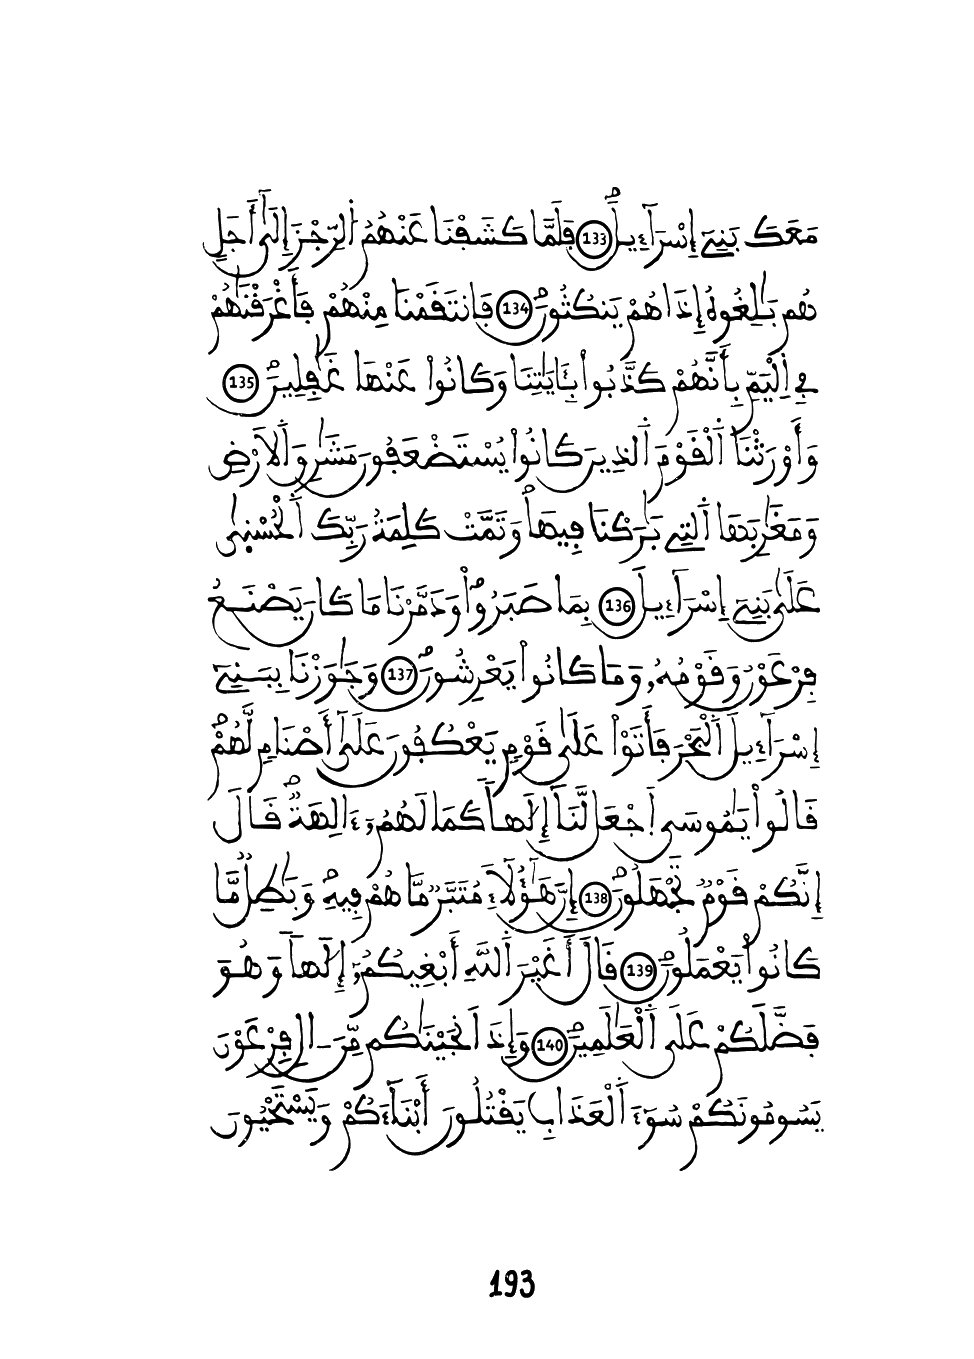 مَعَكَ بَنِےٓ إِسْرَآءِيلَۖ 133 فَلَمَّا كَشَفْنَا عَنْهُمُ اُ۬لرِّجْزَ إِلَىٰٓ أَجَلٍ
هُم بَٰلِغُوهُ إِذَا هُمْ يَنكُثُونَۖ 134 فَانتَقَمْنَا مِنْهُمْ فَأَغْرَقْنَٰهُمْ
فِے اِ۬لْيَمِّ بِأَنَّهُمْ كَذَّبُواْ بِـَٔايَٰتِنَا وَكَانُواْ عَنْهَا غَٰفِلِينَۖ 135
وَأَوْرَثْنَا اَ۬لْقَوْمَ اَ۬لذِينَ كَانُواْ يُسْتَضْعَفُونَ مَشَٰرِقَ اَ۬لَارْضِ
وَمَغَٰرِبَهَا اَ۬لتِے بَٰرَكْنَا فِيهَاۖ وَتَمَّتْ كَلِمَتُ رَبِّكَ اَ۬لْحُسْنَىٰ
عَلَىٰ بَنِےٓ إِسْرَآءِيلَ 136 بِمَا صَبَرُواْۖ وَدَمَّرْنَا مَا كَانَ يَصْنَعُ
فِرْعَوْنُ وَقَوْمُهُۥ وَمَا كَانُواْ يَعْرِشُونَۖ 137 وَجَٰوَزْنَا بِبَنِےٓ
إِسْرَآءِيلَ اَ۬لْبَحْرَ فَأَتَوْاْ عَلَىٰ قَوْمٍ يَعْكُفُونَ عَلَىٰٓ أَصْنَامٍ لَّهُمْۖ
قَالُواْ يَٰمُوسَى اَ۪جْعَل لَّنَآ إِلَٰهاٗ كَمَا لَهُمُۥٓ ءَالِهَةٞۖ قَالَ
إِنَّكُمْ قَوْمٞ تَجْهَلُونَۖ 138 إِنَّ هَٰٓؤُلَآءِ مُتَبَّرٞ مَّا هُمْ فِيهِۖ وَبَٰطِلٞ مَّا
كَانُواْ يَعْمَلُونَۖ 139 قَالَ أَغَيْرَ اَ۬للَّهِ أَبْغِيكُمُۥٓ إِلَٰهاٗ وَهُوَ
فَضَّلَكُمْ عَلَى اَ۬لْعَٰلَمِينَۖ 140 وَإِذَ اَنجَيْنَٰكُم مِّنَ اٰلِ فِرْعَوْنَ
يَسُومُونَكُمْ سُوٓءَ اَ۬لْعَذَابِ يَقْتُلُونَ أَبْنَآءَكُمْ وَيَسْتَحْيُونَ
193